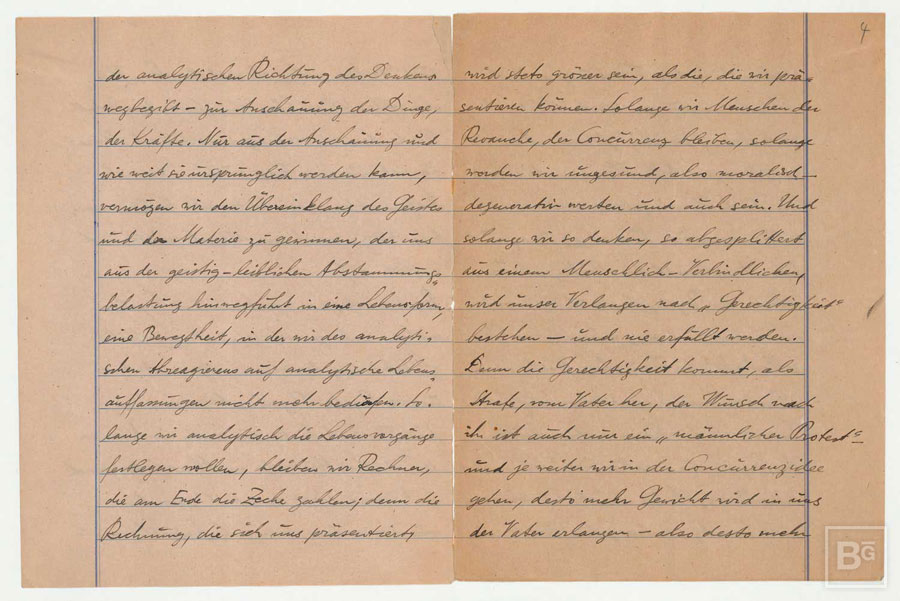 der analytischen Richtung des Denkens
wegbegibt – zur Anschauung der Dinge,
der Kräfte. Nur aus der Anschauung und
wie weit sie ursprünglich werden kann,
vermögen wir den Übereinklang des Geistes
und der Materie zu gewinnen, der uns
aus der geistig-leiblichen Abstammungs-
belastung hinwegführt in eine Lebensform,
eine Bewegtheit, in der wir des analyti-
schen Abreagierens auf analytische Lebens-
auffassungen nicht mehr bedürfen. So-
lange wir analytisch die Lebensvorgänge
festlegen wollen, bleiben wir Rechner,
die am Ende die Zeche zahlen; denn die
Rechnung, die sich uns präsentiert,
4
wird stets grösser sein, als die, die wir prä-
sentieren können. Solange wir Menschen der
Revanche, der Concurrenz bleiben, solange
werden wir ungesund, also moralisch-
degenerativ werten und auch sein. Und
solange wir so denken, so abgesplittert
aus einem Menschlich-Verbindlichen,
wird unser Verlangen nach „Gerechtigkeit“
bestehen – und nie erfüllt werden.
Denn die Gerechtigkeit kommt, als
Strafe, vom Vater her, der Wunsch nach
ihr ist auch nur ein „männlicher Protest“
und je weiter wir in der Concurrenzidee
gehen, desto mehr Gewicht wird in uns
der Vater erlangen – also desto mehr
BG